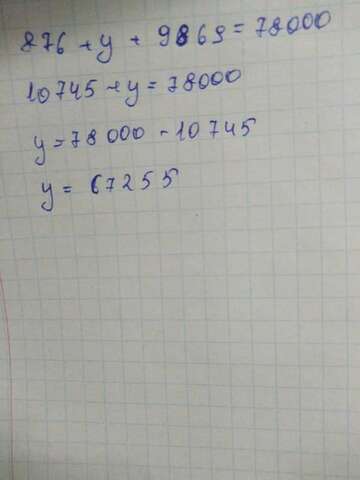 876 + y + 9869 = 78000
10745 + y = 78000
y = 78000 - 10745
y = 67255